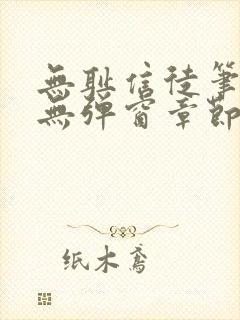 無耻信徒筆
無彈窗章節
纸木鸢